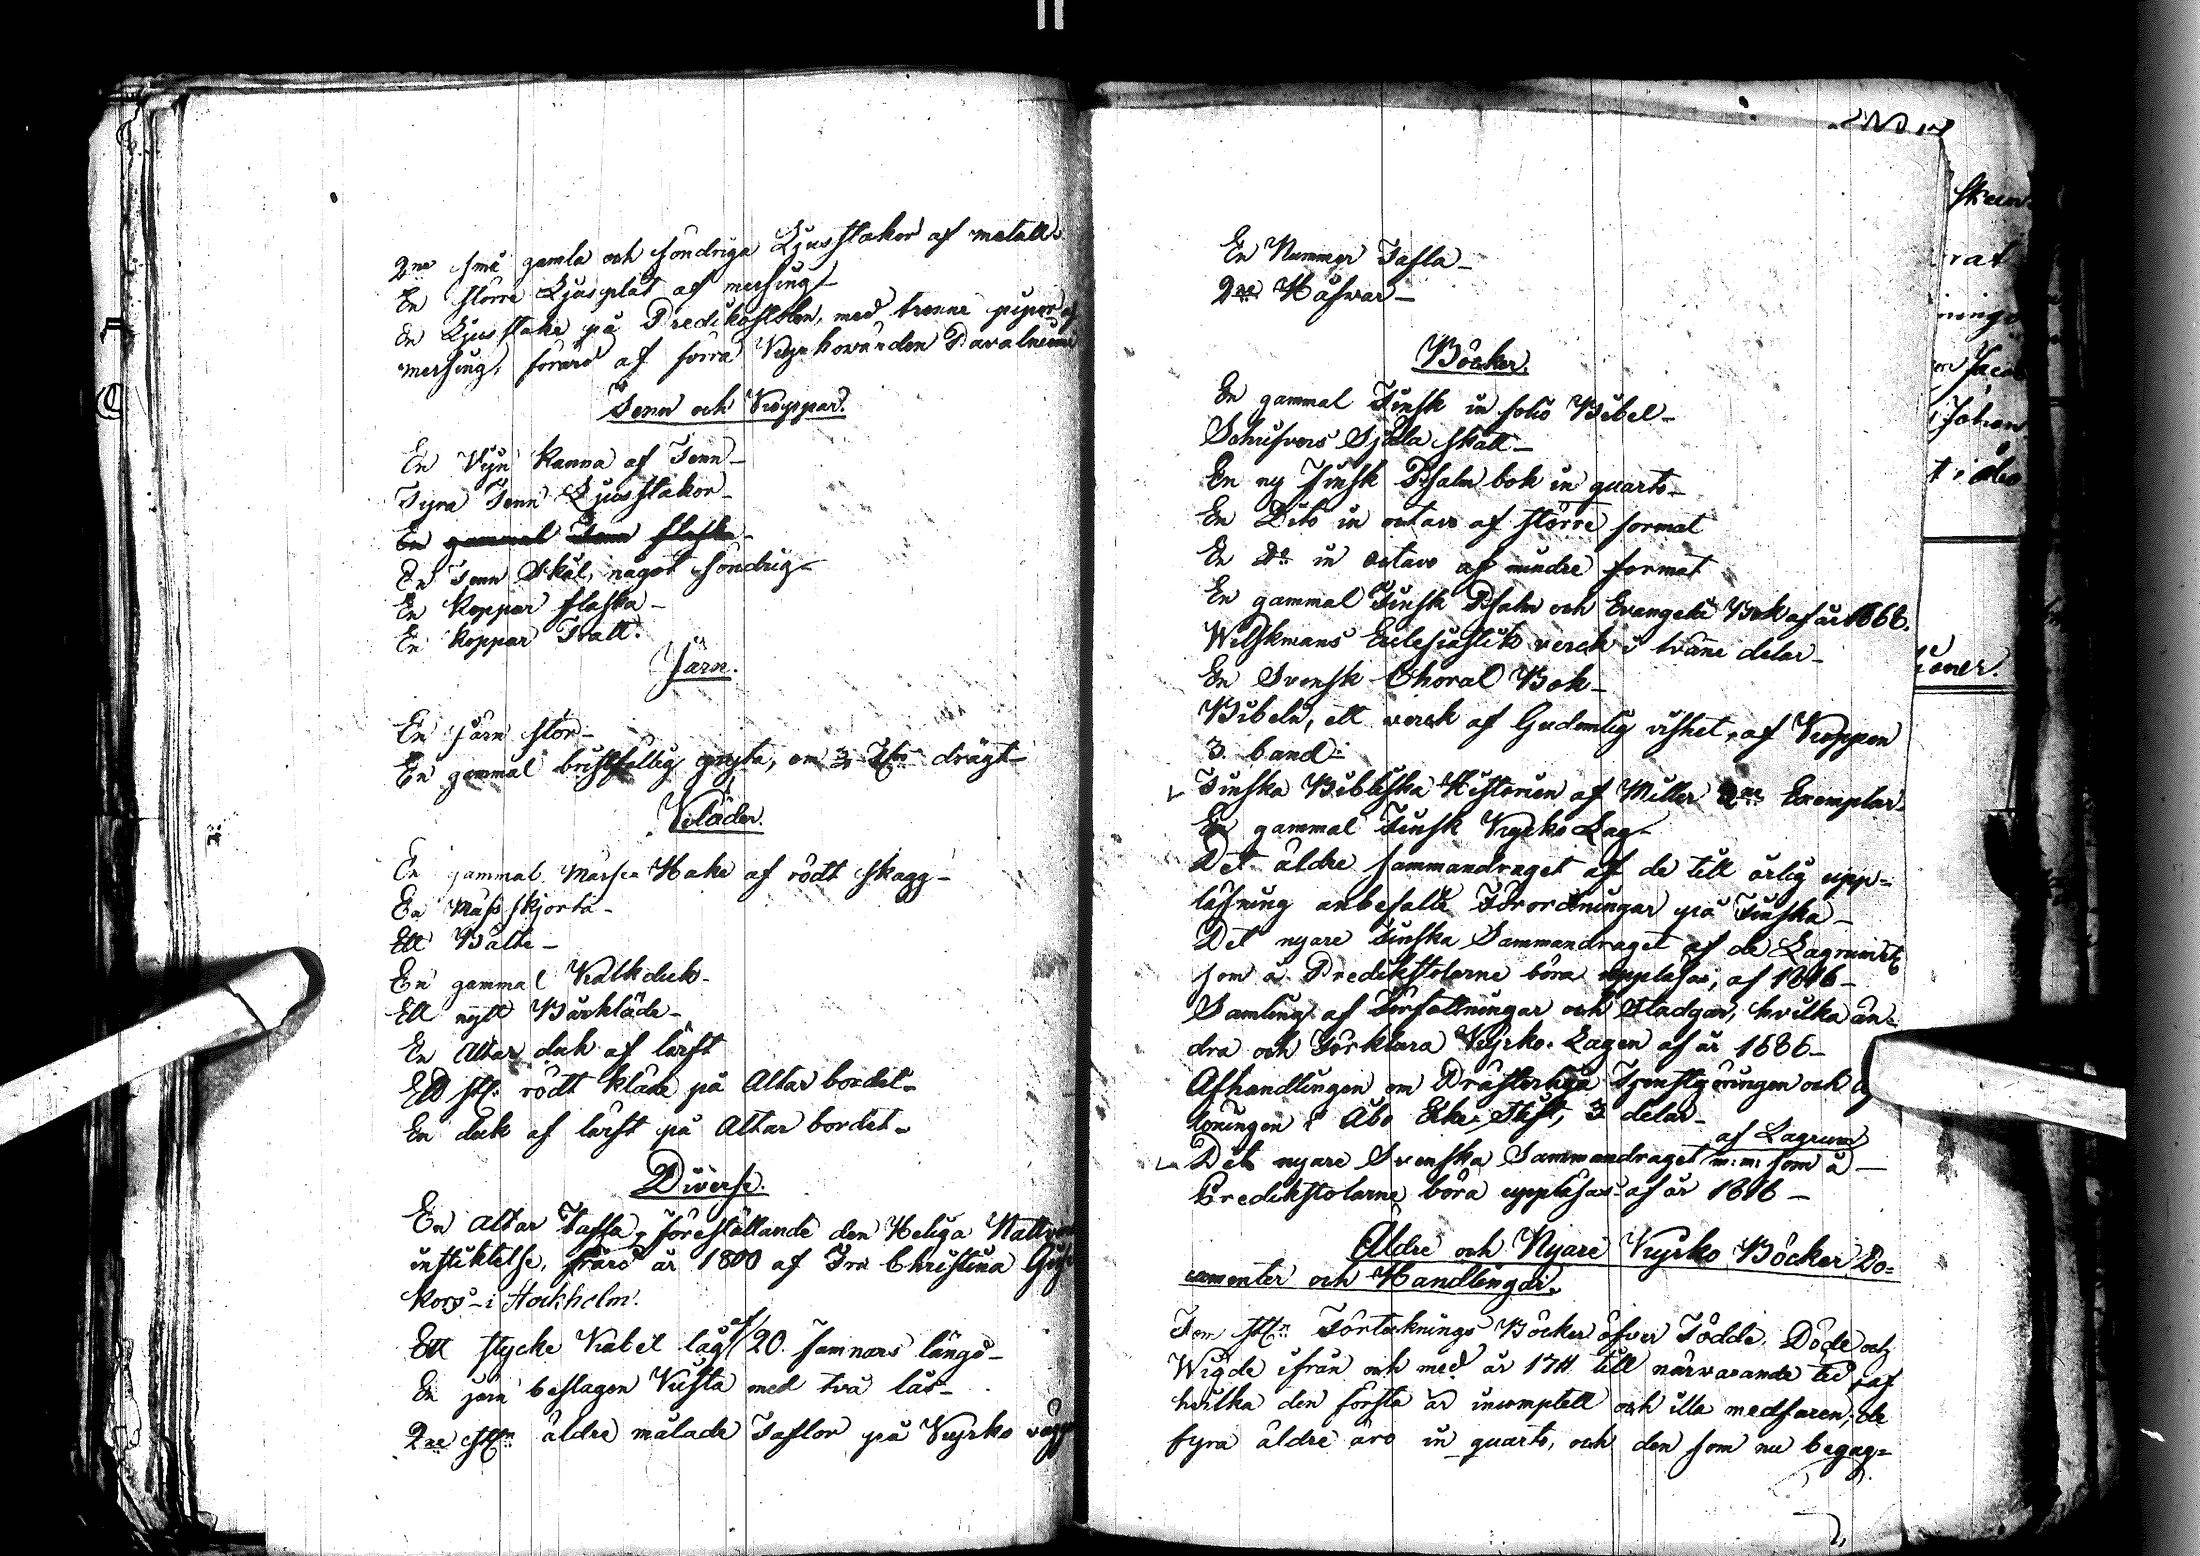 2ne små gamla och söndriga Ljusstakar af metall.
En större Ljusplåt af messing-
En Ljusstake på Predikostolen, med trenne pipor af
messing, förärd af förra Kyrkowärden Paralneim
Tenn och Koppar.
En Vijn kanna af Tenn-
Fyra Tenn Ljusstakar-
En gammal Tenn flaska-
En Tenn Skål, något söndrig-
En Koppar flaska-
En Koppar Tratt.
Järn.
En järn stör-
En gammal bristfällig gryta, om 3 drägt-
Kläder.
En gammal Mässe Hake af rödt skagg-
En Mäss skjorta-
Ett Bälte-
En gammal Kalkduk-
Ett nytt Bårkläde-
En Altar duk af lärft
Ett st: rödt kläde på Altar bordet-
En duk af lärft på Altar bordet-
Diverse.
En Altar Taffla, föreställande den Heliga
instiktelse, förärd år 1800 af Fru Christina
kors- i Stockholm.
Ett stycke Kabel tåg af 20. famnars längd-
En järn beslagen Kista med två lås-
2ne st:n äldre målade Taflor på Kyrko
En Nummer Tafla-
2ne Håfvar-
Böcker.
En gammal Finsk in folio Bibel-
Schrifvers Själa skatt-
En ny Finsk Psalm bok in quarto-
En Dito in octavo af större format
En Do in octavo af mindre format
En gammal Finsk Psalm och Evangelii Bok af år 1666.
Wilskmans Ecclesiastik verck i tvänne delar-
En Svensk Choral Bok-
Bibeln, ett verck af Gudomlig vishet, af Koppen
3. band-
Finska Bibliska Historien af Miller 2ne Exemplar-
En gammal Finsk Kyrko Lag-
Det äldre sammandraget af de till årlig upp-
läsning anbefalte Förordningar på Finska-
Det nyare Finska Sammandraget af de Lagrum etc
som å Predikstolarne böra uppläsas, af 1816-
Samling af Författningar och Stadgar, hvilka än-
dra och förklara Kyrko-Lagen af år 1686-
Afhandlingen om Prästerliga Tjenstgöringen och
löningen i Åbo Erke Stift, 3 delar-
Det nyare Svenska Sammandraget af Lagrum m:m: som å-
Predikstolarne böra uppläsas af år 1816-
Äldre och Nyare Kyrko Böcker, Do-
cumenter och Handlingar.
Fem st:n Förtecknings Böcker öfver Födde, Döde och
Wigde ifrån och med år 1711 till närvarande tid, af
hvilka den första är incomplett och illa medfaren; de
fyra äldre äro in quarto, och den som nu begag-
rat
Jacob
Johan